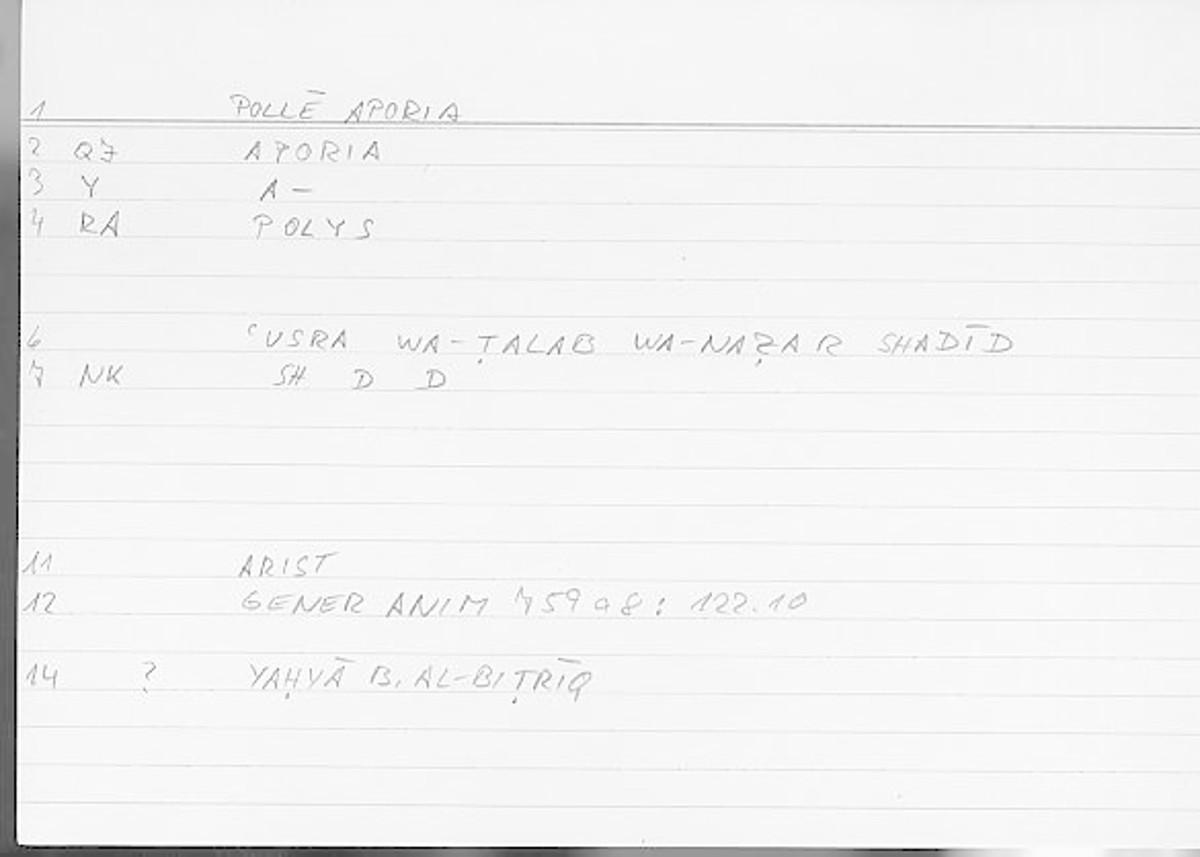 1 POLLĒ APORIA
2 QZ APORIA
3 Y A –
4 RA POLYS
6 ʿUSRA WA-ṬALAB WA-NAẒAR SHADĪD
7 NK SH D D
11 ARIST
12 GENER ANIM 759a8: 122.10
14 ? YAḤYĀ B. AL-BIṬRĪQ